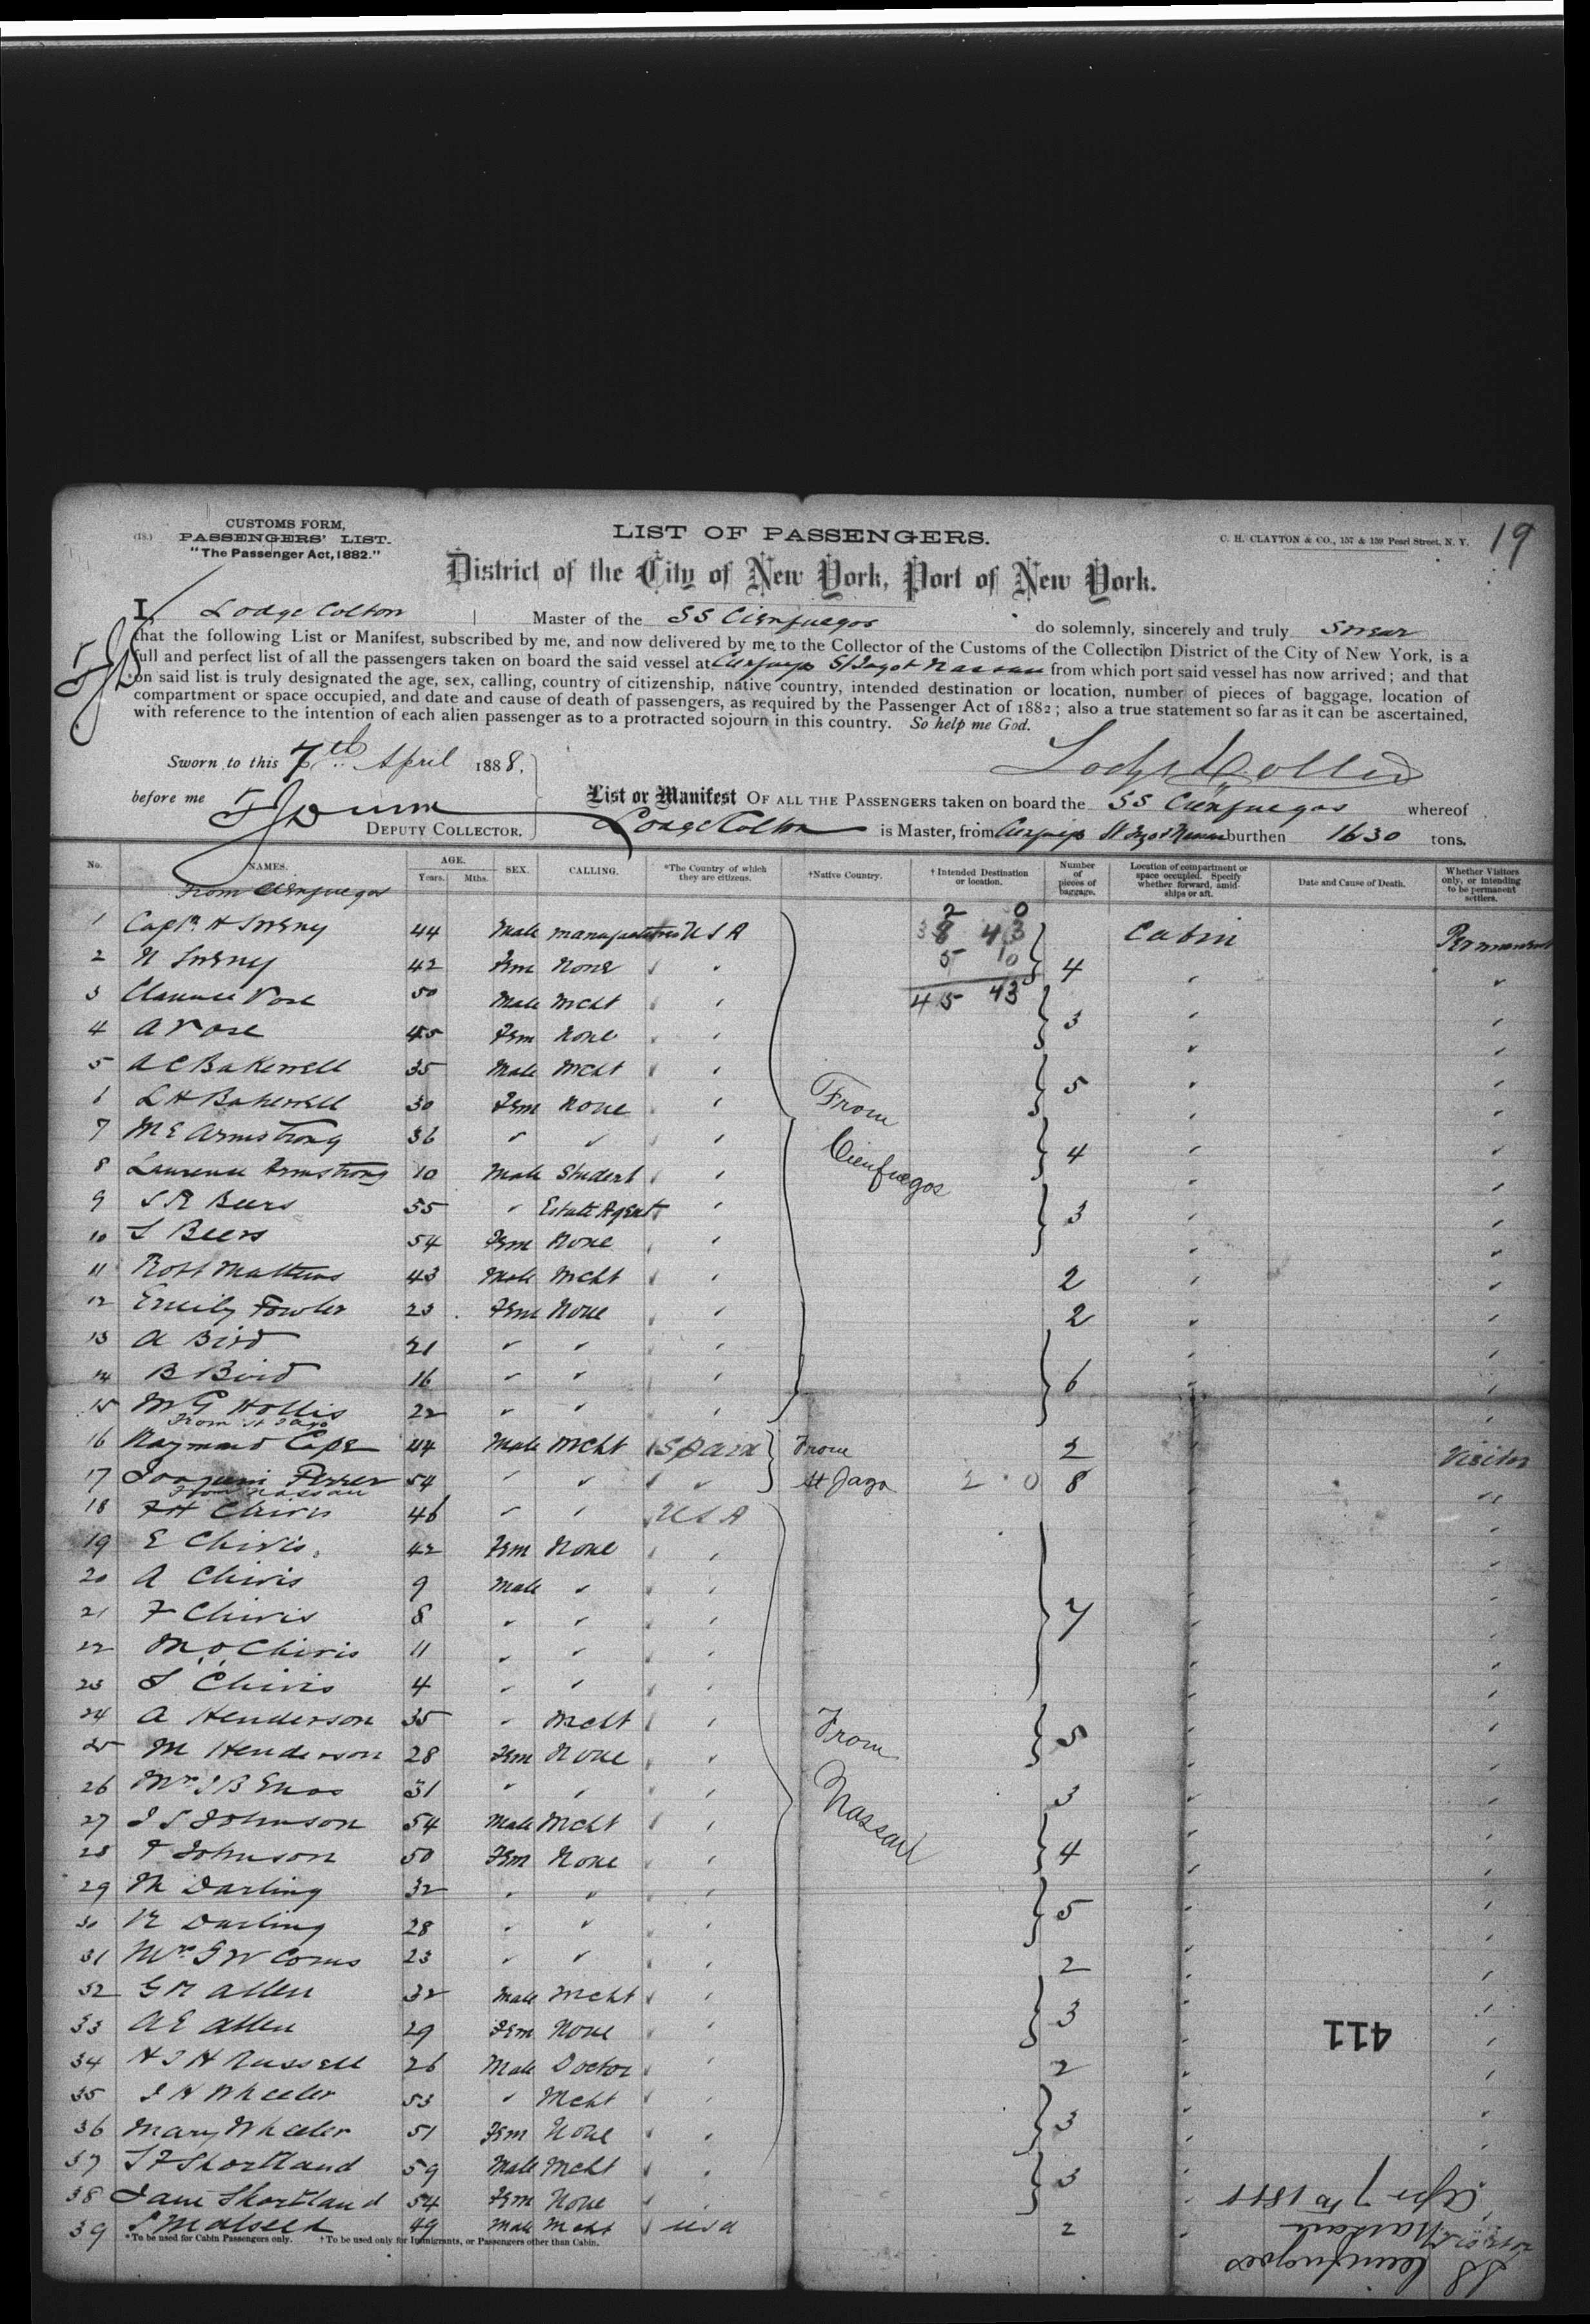 19
CUSTOMS FORM,
(18.) PASSENGERS' LIST.
"The Passenger Act, 1882."
LIST OF PASSENGERS.
C. H. CLAYTON & CO., 157 & 159 Pearl Street, N. Y.
District of the City of New York, Port of New York.
I, Lodge Colton Master of the SS Cienfuegos do solemnly, sincerely and truly swear
that the following List or Manifest, subscribed by me, and now delivered by me to the Collector of the Customs of the Collection District of the City of New York, is a
full and perfect list of all the passengers taken on board the said vessel at Cienfuegos St Jago & Nassau from which port said vessel has now arrived; and that
on said list is truly designated the age, sex, calling, country of citizenship, native country, intended destination or location, number of pieces of baggage, location of
compartment or space occupied, and date and cause of death of passengers, as required by the Passenger Act of 1882; also a true statement so far as it can be ascertained,
with reference to the intention of each alien passenger as to a protracted sojourn in this country. So help me God.
Sworn to this 7th April 1888,
before me
DEPUTY COLLECTOR.
List or Manifest OF ALL THE PASSENGERS taken on board the SS Cienfuegos whereof
Lodge Colton is Master, from Cienfuegos St Jago & Nassau burthen 1630 tons.
No. NAMES. AGE. Years. Mths. SEX. CALLING. *The Country of which they are citizens. †Native Country. †Intended Destination or location. Number of pieces of baggage. Location of compartment or space occupied. Specify whether forward, amidships or aft. Date and Cause of Death. Whether Visitors only, or intending to be permanent settlers.
From Cienfuegos
2 0
38 43
5 10
45 43
1 Capt. H Sweny 44 Male USA Cabin Permanent
2 N Sweny 42 Fem None 4
3 Clarence Vose 50 Male Mcht
4 A Vose 45 Fem None 3
5 A C Bakewell 35 Male Mcht
6 L H Bakewell 30 Fem None 5
From Cienfuegos
7 M E Armstrong 36
8 Laurence Armstrong 10 Male Student 4
9 S R Beers 55 Estate Agent
10 S Beers 54 Fem None 3
11 Robt Mathews 43 Male Mcht 2
12 Emily Fowler 23 Fem None 2
13 A Bird 21
14 B Bird 16 6
15 M G Hollis 22
From St Jago
16 Raymond Cape 44 Male Mcht Spain From 2 Visitor
17 Joaquin Ferrer 54 St Jago 2 0 8
From Nassau
18 F H Chivis 46 USA
19 E Chivis 42 Fem None
20 A Chivis 9 Male
21 F Chivis 8 7
22 Chivis 11
23 S Chivis 4
24 A Henderson 35 Mcht
25 M Henderson 28 Fem None 5
From Nassau
26 Mrs J B Enos 31 3
27 J S Johnson 54 Male Mcht
28 F Johnson 50 Fem None 4
29 M Darling 32
30 Darling 28 5
31 Mrs G W Corns 23 2
32 G M Allen 32 Male Mcht
33 A E Allen 29 Fem None 3
34 H J H Russell 26 Male Doctor 2
35 J H Wheeler 53 Mcht
36 Mary Wheeler 51 Fem None 3
37 S F Shortland 59 Male Mcht
38 Jane Shortland 54 Fem None 3
39 49 Male Mcht USA 2
*To be used for Cabin Passengers only. †To be used only for Immigrants, or Passengers other than Cabin.
411
SS Cienfuegos
Nassau
Apr 7th 1888